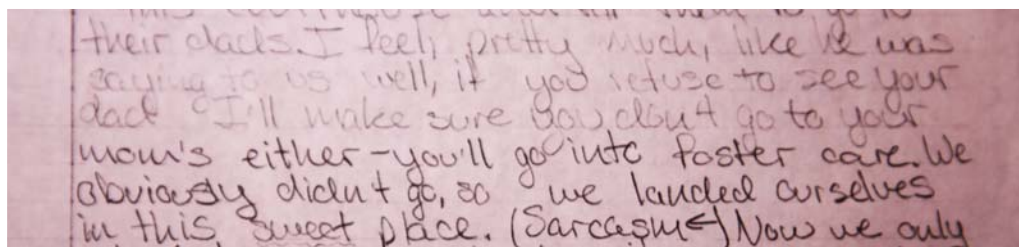 them to go to
their dads. I feel, pretty much, like he was
saying to us well, if you refuse to see your
dad I'll make sure you don't go to your
mom's either-you'll go into foster care. We
obviously didn't go, so we landed ourselves
in this sweet place. (Sarcasm←) Now we only